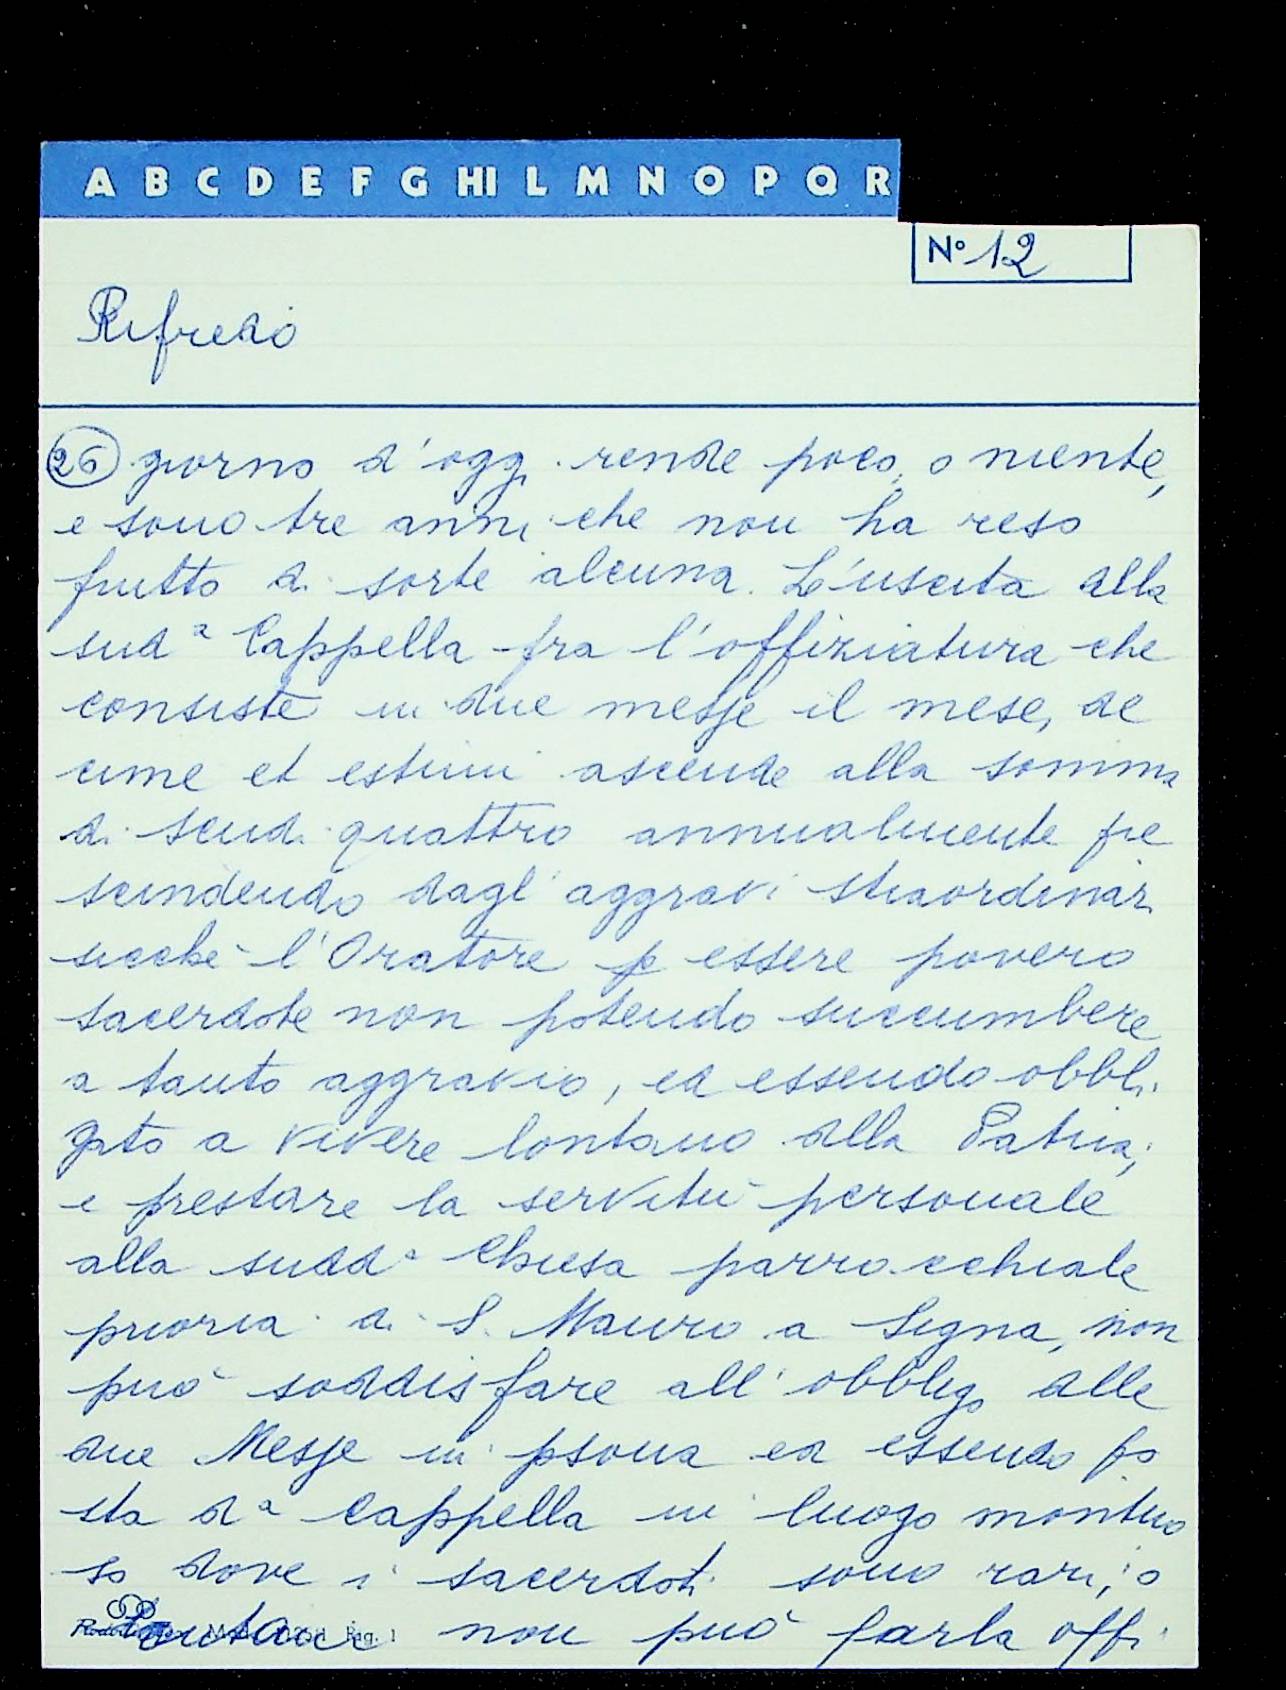 A B C D E F G HI L M N O P Q R
Nº 12
Rifredo
26 giorno d'oggi rende poco, o niente,
e sono tre anni che non ha reso
frutto di sorte alcuna. L'uscita alla
sudª Cappella fra l'offiziatura che
consiste in due messe il mese, de
cime et estimi ascende alla somma
di scudi quattro annualmente pre
scindendo dagl'aggravi straordinari
sicchè l'Oratore p essere povero
sacerdote non potendo succumbere
a tanto aggravio, ed essendo obbli
gato a vivere lontano dalla Patria,
e prestare la servitù personale
alla suddª Chiesa parrocchiale
prioria di S. Mauro a Signa, non
può soddisfare all'obbligo delle
due Messe in psona ed essendo po
sta dª Cappella in luogo montuo
so dove i sacerdoti sono rari, o
lontani non può farla offi
Pag. 1